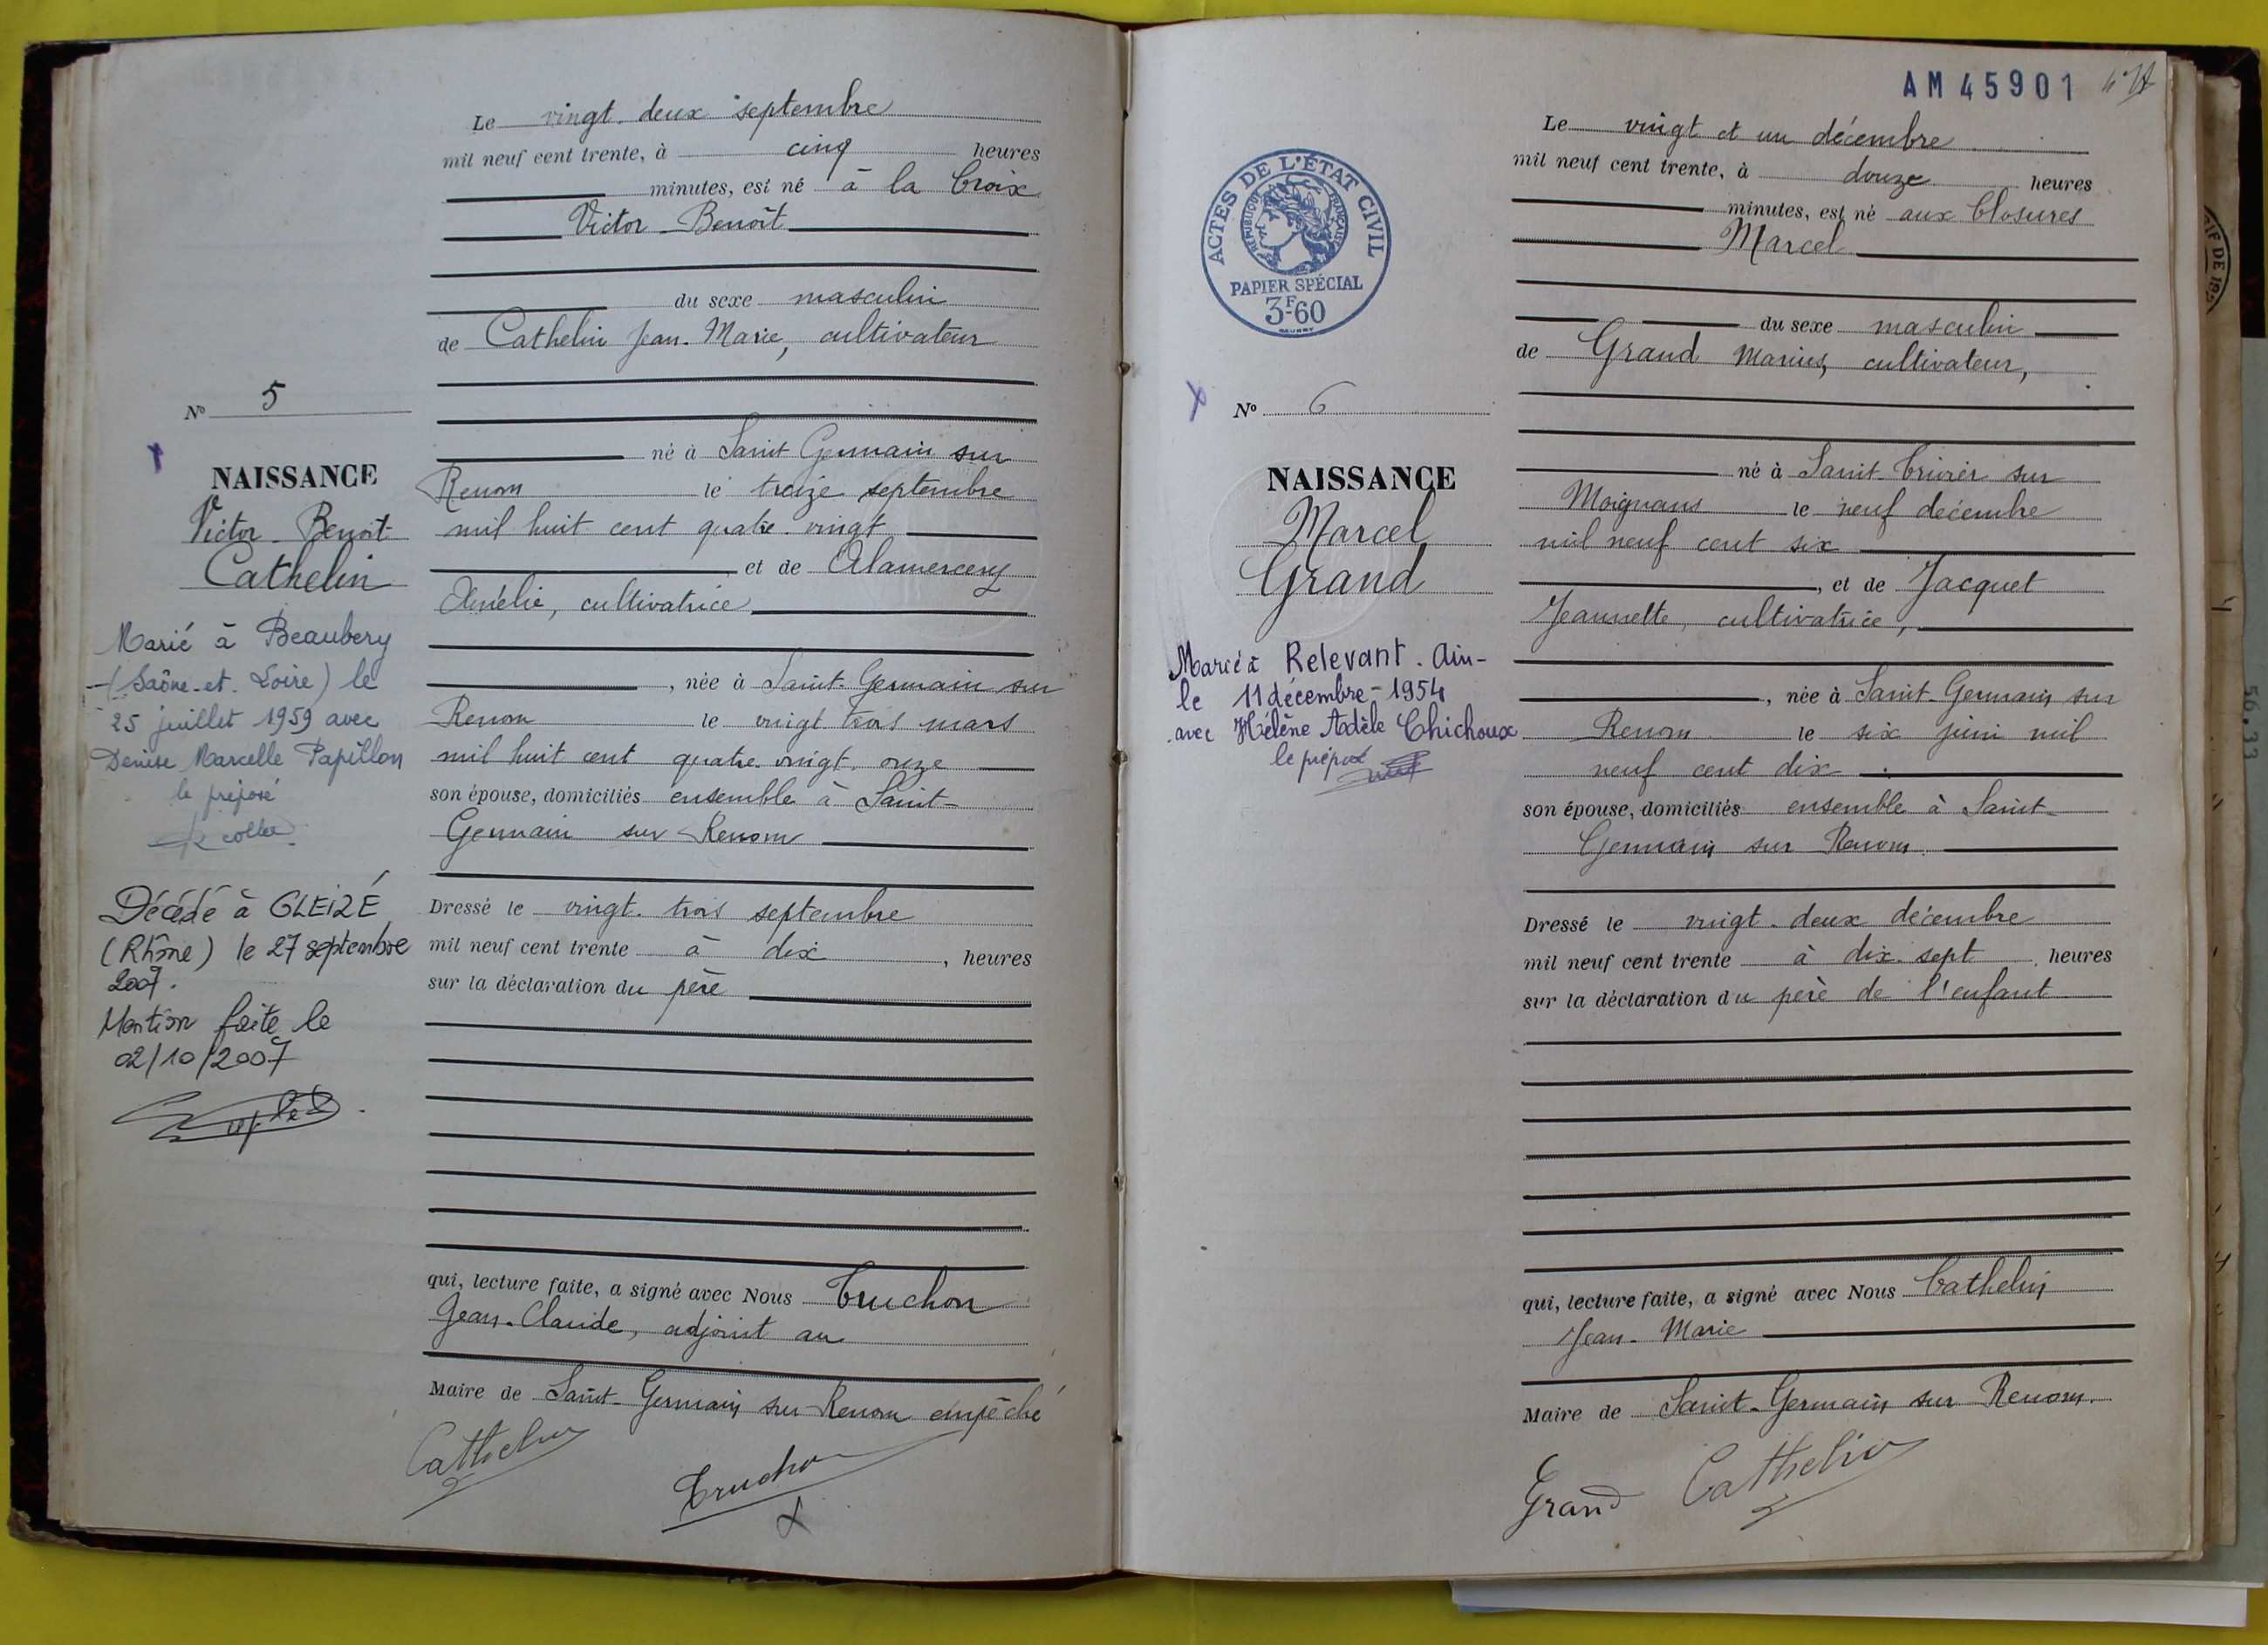 Le vingt. deux septembre
mil neuf cent trente, à cinq heures
minutes, est né à la Croix
Victor-Benoît
du sexe masculin
de Cathelin Jean-Marie, cultivateur
né à Saint Germain sur
Renom le treize septembre
mil huit cent quatre-vingt
et de Alamercery
Amélie, cultivatrice
, née à Saint-Germain sur
Renom le vingt trois mars
mil huit cent quatre-vingt-onze
son épouse, domiciliés ensemble à Saint-
Germain sur Renom
Dressé le vingt-trois septembre
mil neuf cent trente à dix, heures
sur la déclaration du père
qui, lecture faite, a signé avec Nous Truchon
Jean-Claude, adjoint au
Maire de Saint-Germain sur Renom empêché
Cathelin
Truchon
N° 5
NAISSANCE
Victor-Benoît
Cathelin
Marié à Beaubery
(Saône-et-Loire) le
25 juillet 1959 avec
Denise Marcelle Papillon
le préposé
Décédé à GLEIZÉ
(Rhône) le 27 septembre
2007.
Mention faite le
02/10/2007
AM 45901
ACTES DE L'ÉTAT CIVIL
RÉPUBLIQUE FRANÇAISE
PAPIER SPÉCIAL
3F60
N° 6
NAISSANCE
Marcel
Grand
Marié à Relevant. Ain-
le 11 décembre-1954
avec Hélène Adèle Chichoux
le préposé
Le vingt et un décembre
mil neuf cent trente, à douze heures
minutes, est né aux Closures
Marcel
du sexe masculin
de Grand Marius, cultivateur,
né à Saint-Trivier sur
Moignans le neuf décembre
mil neuf cent six
, et de Jacquet
Jeannette, cultivatrice,
, née à Saint-Germain sur
Renom le six juin mil
neuf cent dix
son épouse, domiciliés ensemble à Saint-
Germain sur Renom.
Dressé le vingt-deux décembre
mil neuf cent trente à dix-sept heures
sur la déclaration du père de l'enfant
qui, lecture faite, a signé avec Nous Cathelin
Jean-Marie
Maire de Saint-Germain sur Renom.
Grand
Cathelin